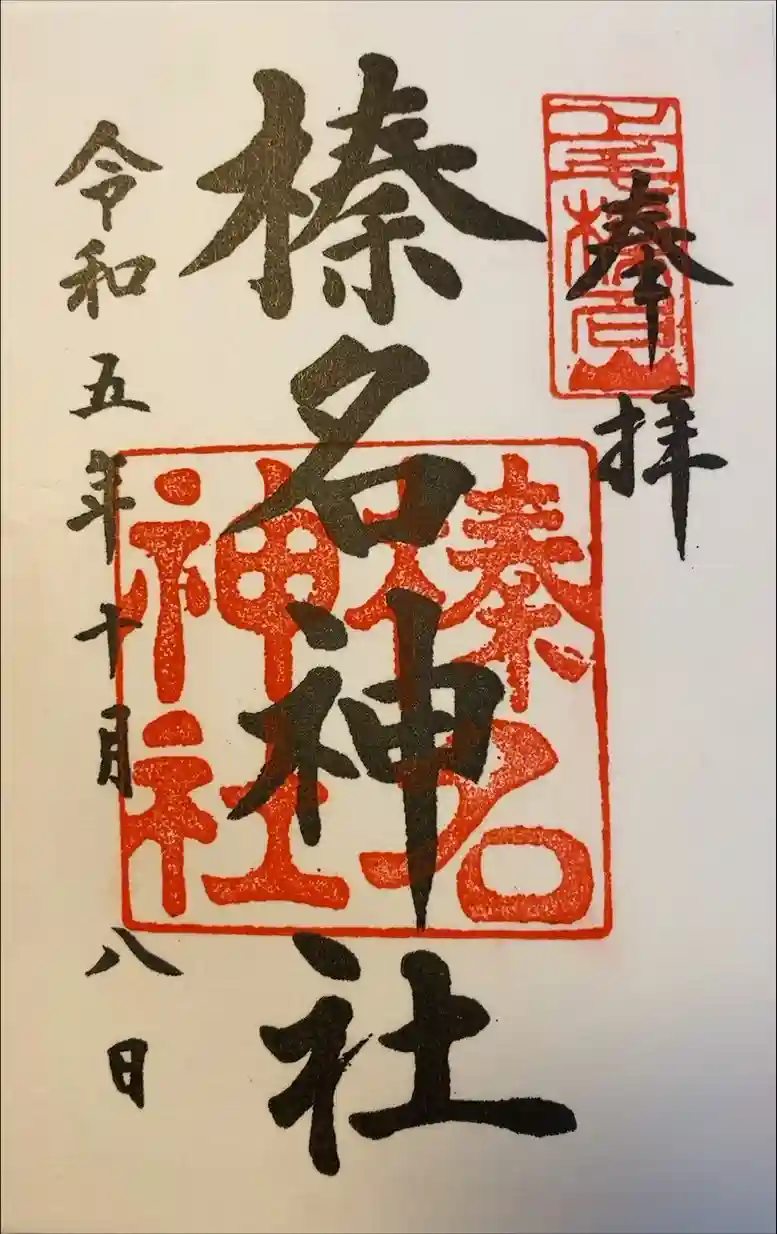 奉拝
上毛榛名山
榛名神社
榛名神社
令和五年十月八日